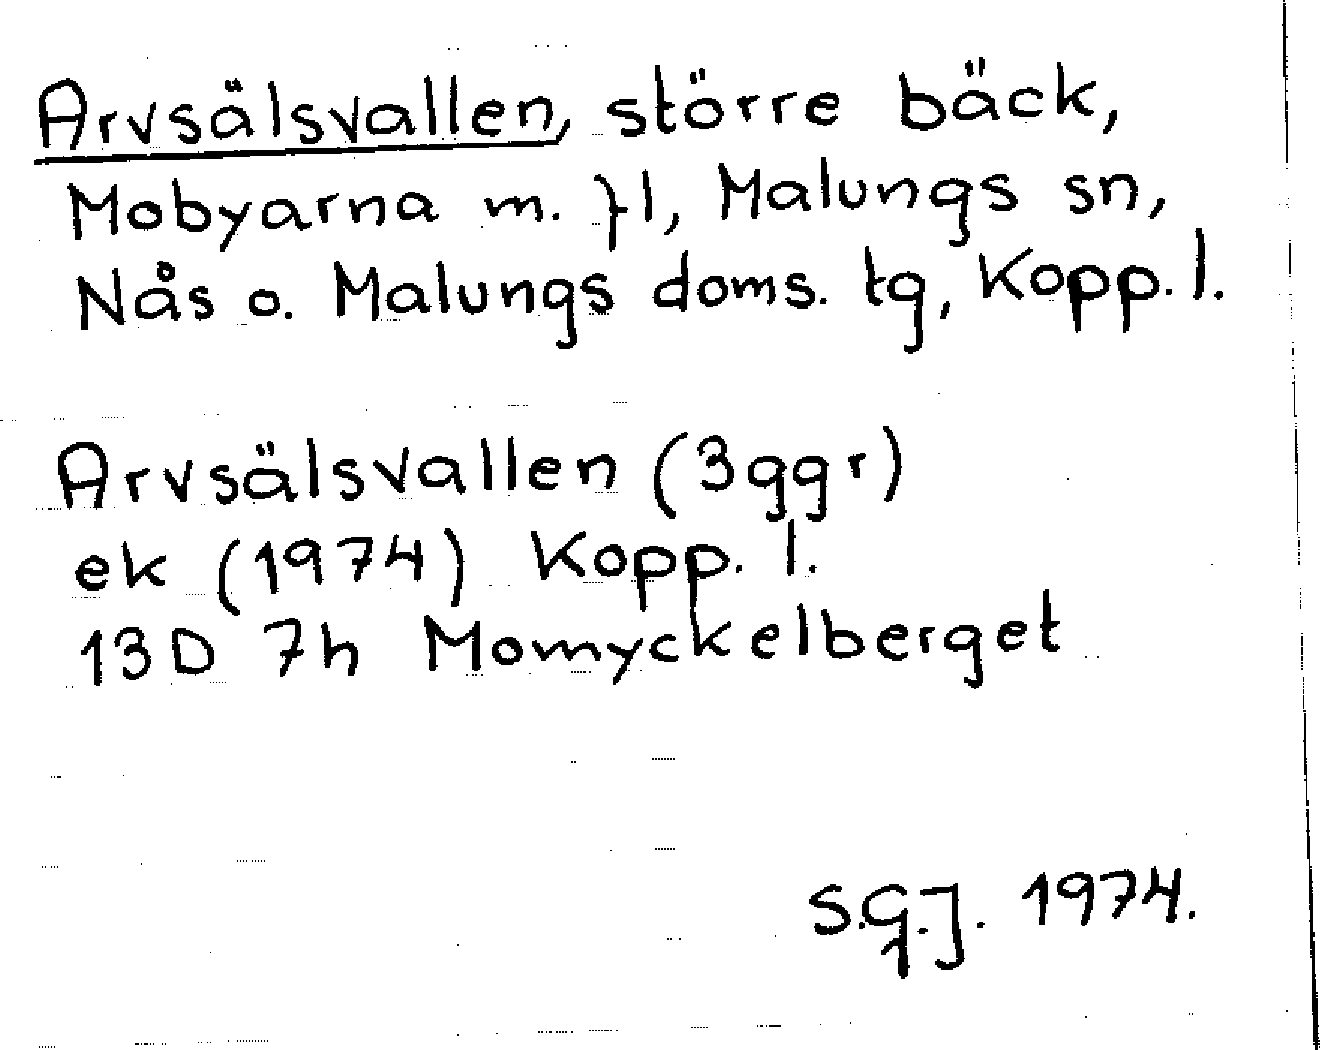 Arvsälsvallen, större bäck,
Mobyarna m. fl, Malungs sn,
Nås o. Malungs doms. tg, Kopp. l.
Arvsälsvallen (3 ggr)
ek (1974) Kopp. l.
13D 7h Momyckelberget
S.G.J. 1974.